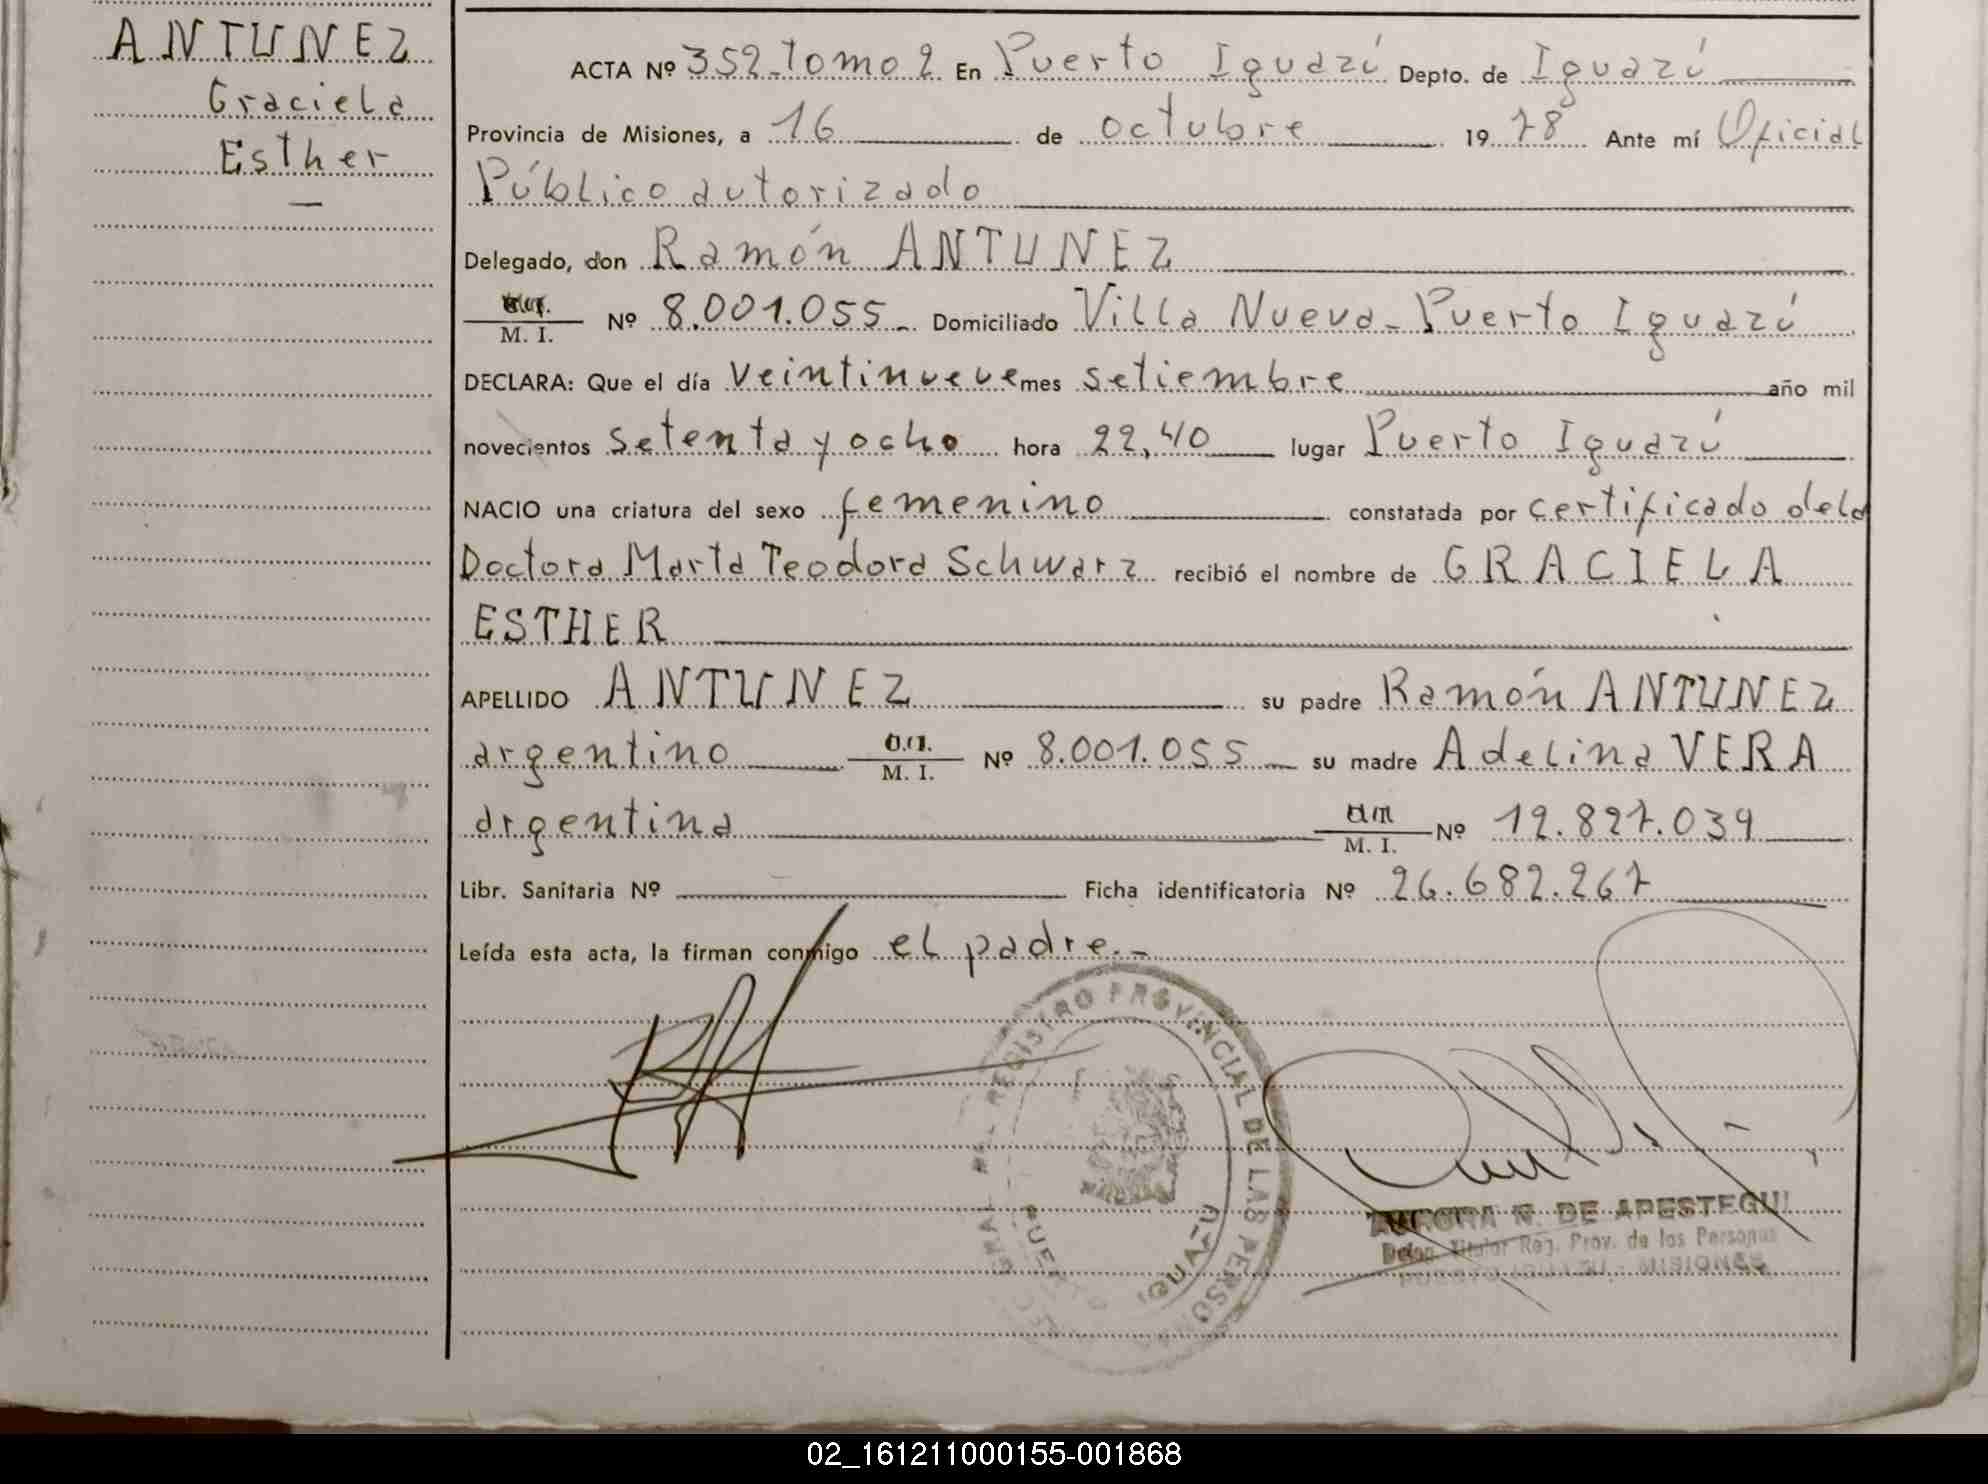 ANTUNEZ
Graciela
Esther
ACTA Nº 352 Tomo 2 En Puerto Iguazú Depto. de Iguazú
Provincia de Misiones, a 16 de octubre 1978 Ante mí Oficial
Público autorizado
Delegado, don Ramón ANTUNEZ
M. I. Nº 8.001.055 Domiciliado Villa Nueva - Puerto Iguazú
DECLARA: Que el día veintinueve mes setiembre año mil
novecientos setenta y ocho hora 22,40 lugar Puerto Iguazú
NACIO una criatura del sexo femenino constatada por certificado dela
Doctora Marta Teodora Schwarz recibió el nombre de GRACIELA
ESTHER
APELLIDO ANTUNEZ su padre Ramón ANTUNEZ
argentino M. I. Nº 8.001.055 su madre Adelina VERA
argentina M. I. Nº 12.827.039
Libr. Sanitaria Nº Ficha identificatoria Nº 26.682.267
Leída esta acta, la firman conmigo el padre.-
REGISTRO PROVINCIAL DE LAS PERSONAS
IGUAZU
AURORA N. DE APESTEGUI
Deleg. Titular Reg. Prov. de las Personas
PUERTO IGUAZU - MISIONES
02_161211000155-001868